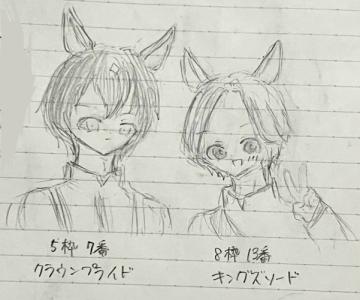 5枠 7番
クラウンプライド
8枠 13番
キングズソード